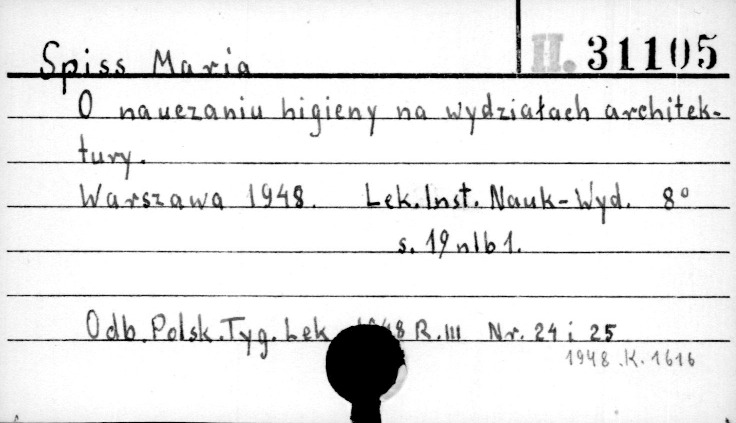 II. 31105
Spiss Maria
O nauczaniu higieny na wydziałach architek-
tury.
Warszawa 1948. Lek. Inst. Nauk-Wyd. 8°
s. 19 nlb 1.
Odb. Polsk. Tyg. Lek. 1948 R. III Nr. 24 i 25
1948. K. 1616